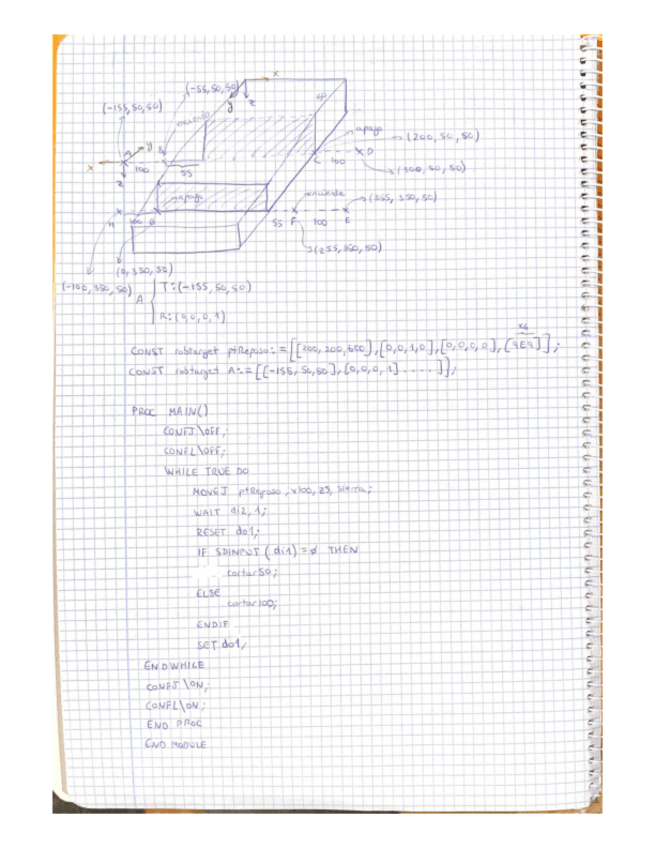 x
(-55,50,50)
z
y
(-155,50,50)
enciendo
y
x
apago
(200,50,50)
z
100
55
C
100
D
(100,50,50)
apago
enciende
(355,350,50)
H
100
G
55
F
100
E
(255,350,50)
(0,350,50)
(-100,350,50)
A
T:(-155,50,50)
R:(0,0,0,1)
x6
CONST robtarget ptReposo:=[[200,200,600],[0,0,1,0],[0,0,0,0],[9E9]];
CONST robtarget A:=[[-155,50,50],[0,0,0,1].....]];
PROC MAIN()
CONFJ\OFF;
CONFL\OFF;
WHILE TRUE DO
MOVEJ ptReposo, v100, 25, sierra;
WAIT di2,1;
RESET do1;
IF SDINPUT (di1)=0 THEN
cortar50;
ELSE
cortar100;
ENDIF
SET do1;
ENDWHILE
CONFJ\ON;
CONFL\ON;
END PROC
END MODULE